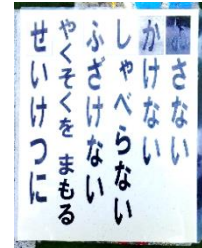 さない
かけない
しゃべらない
ふざけない
やくそくを まもる
せいけつに